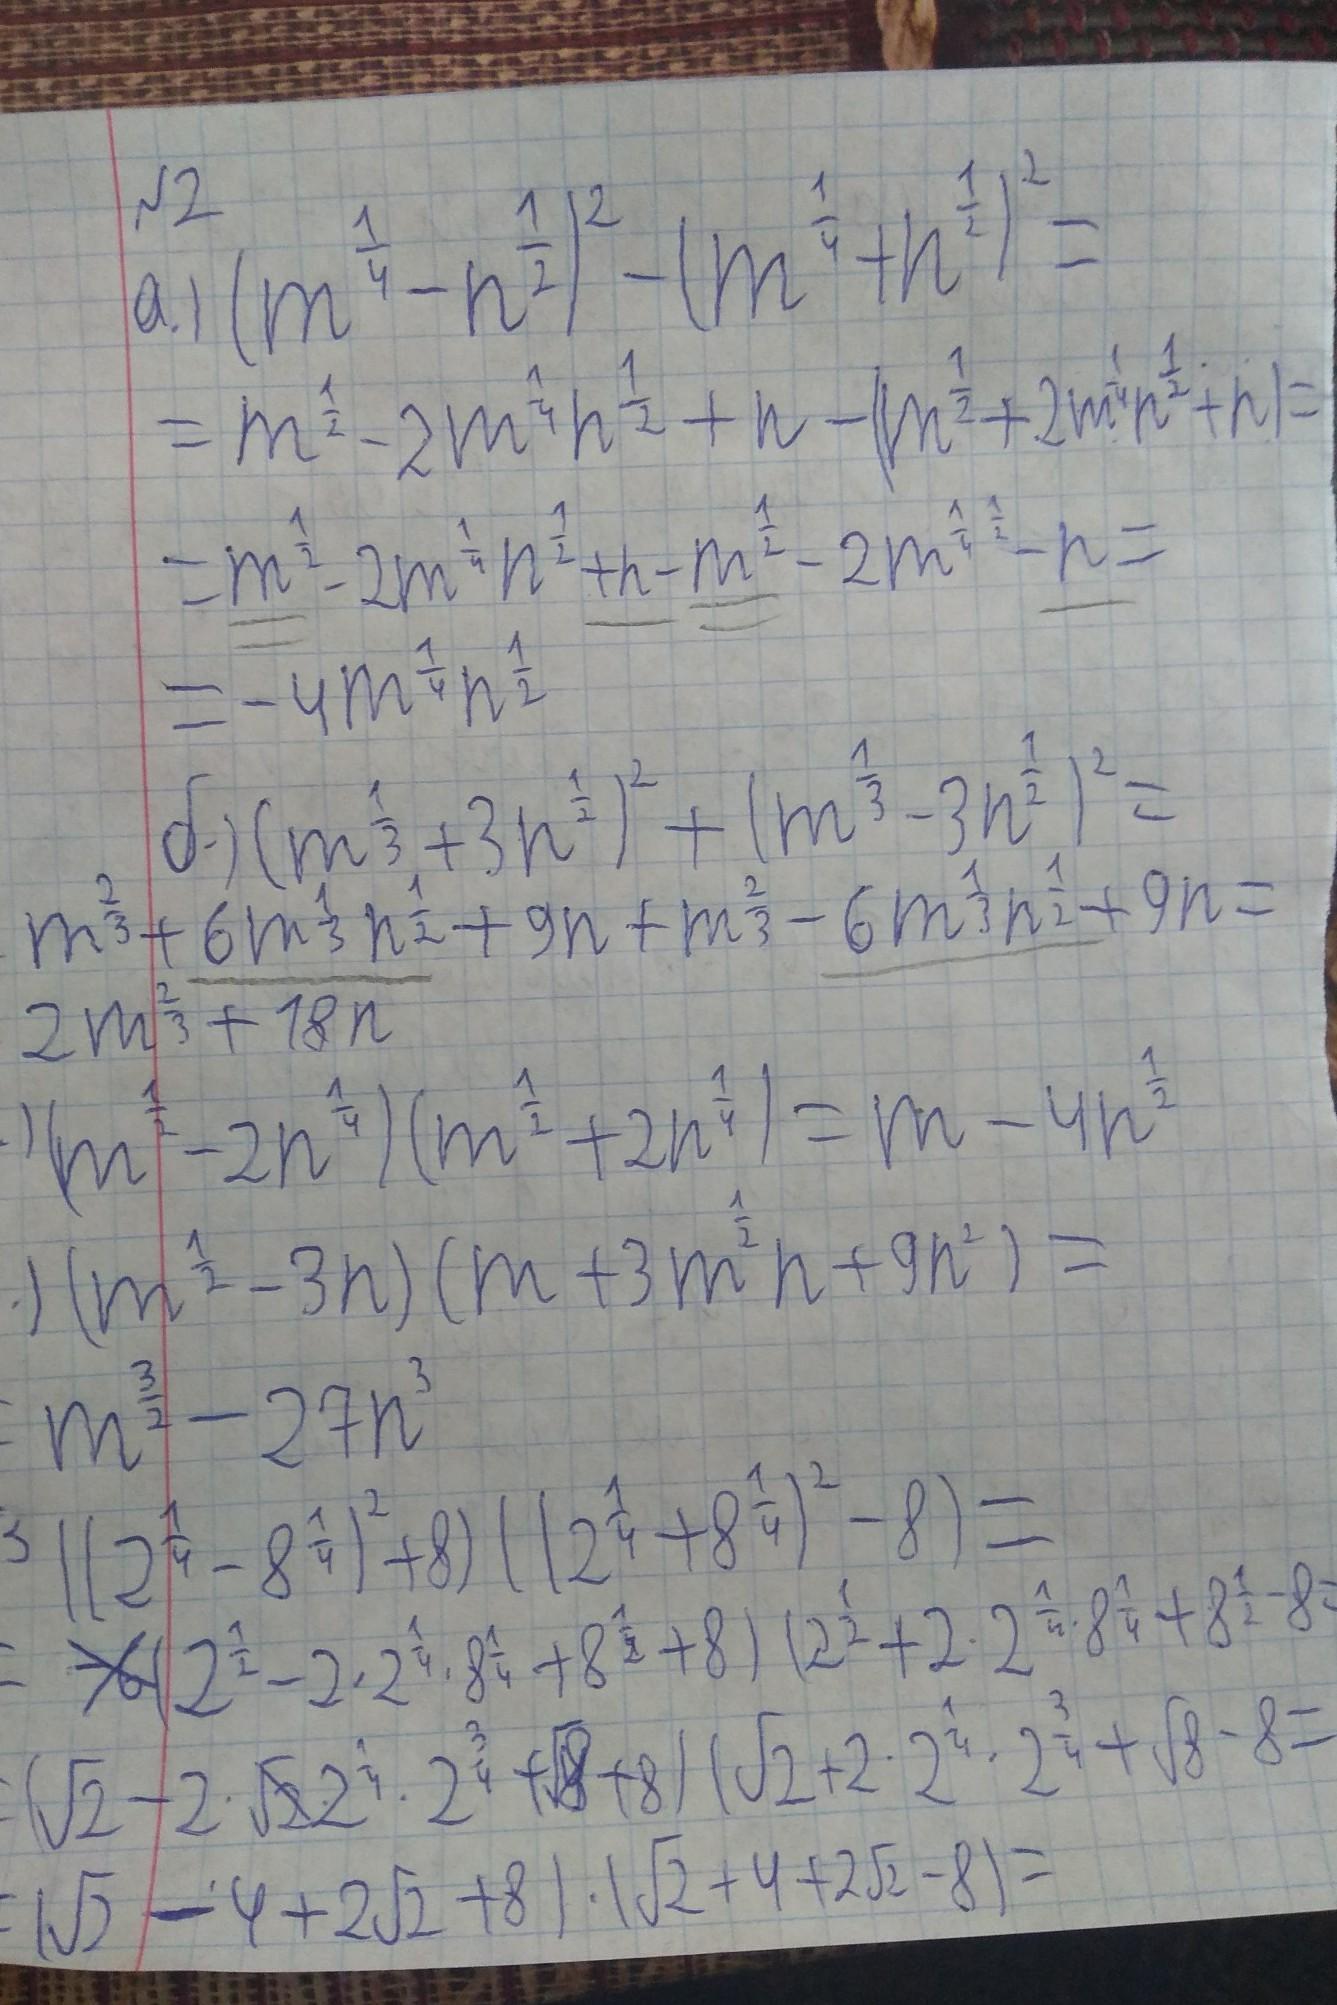 №2
а.) (m^{1/4} - n^{1/2})^2 - (m^{1/4} + n^{1/2})^2 =
= m^{1/2} - 2m^{1/4}n^{1/2} + n - (m^{1/2} + 2m^{1/4}n^{1/2} + n) =
= m^{1/2} - 2m^{1/4}n^{1/2} + n - m^{1/2} - 2m^{1/4 1/2} - n =
= -4m^{1/4}n^{1/2}
б.) (m^{1/3} + 3n^{1/2})^2 + (m^{1/3} - 3n^{1/2})^2 =
m^{2/3} + 6m^{1/3}n^{1/2} + 9n + m^{2/3} - 6m^{1/3}n^{1/2} + 9n =
2m^{2/3} + 18n
.) (m^{1/2} - 2n^{1/4})(m^{1/2} + 2n^{1/4}) = m - 4n^{1/2}
.) (m^{1/2} - 3n)(m + 3m^{1/2}n + 9n^2) =
= m^{3/2} - 27n^3
3 ((2^{1/4} - 8^{1/4})^2 + 8)((2^{1/4} + 8^{1/4})^2 - 8) =
= (2^{1/2} - 2·2^{1/4}·8^{1/4} + 8^{1/2} + 8)(2^{1/2} + 2·2^{1/4}·8^{1/4} + 8^{1/2} - 8 =
= (√2 - 2·2^{1/4}·2^{3/4} + √8 + 8)(√2 + 2·2^{1/4}·2^{3/4} + √8 - 8 =
= (√2 - 4 + 2√2 + 8)·(√2 + 4 + 2√2 - 8) =